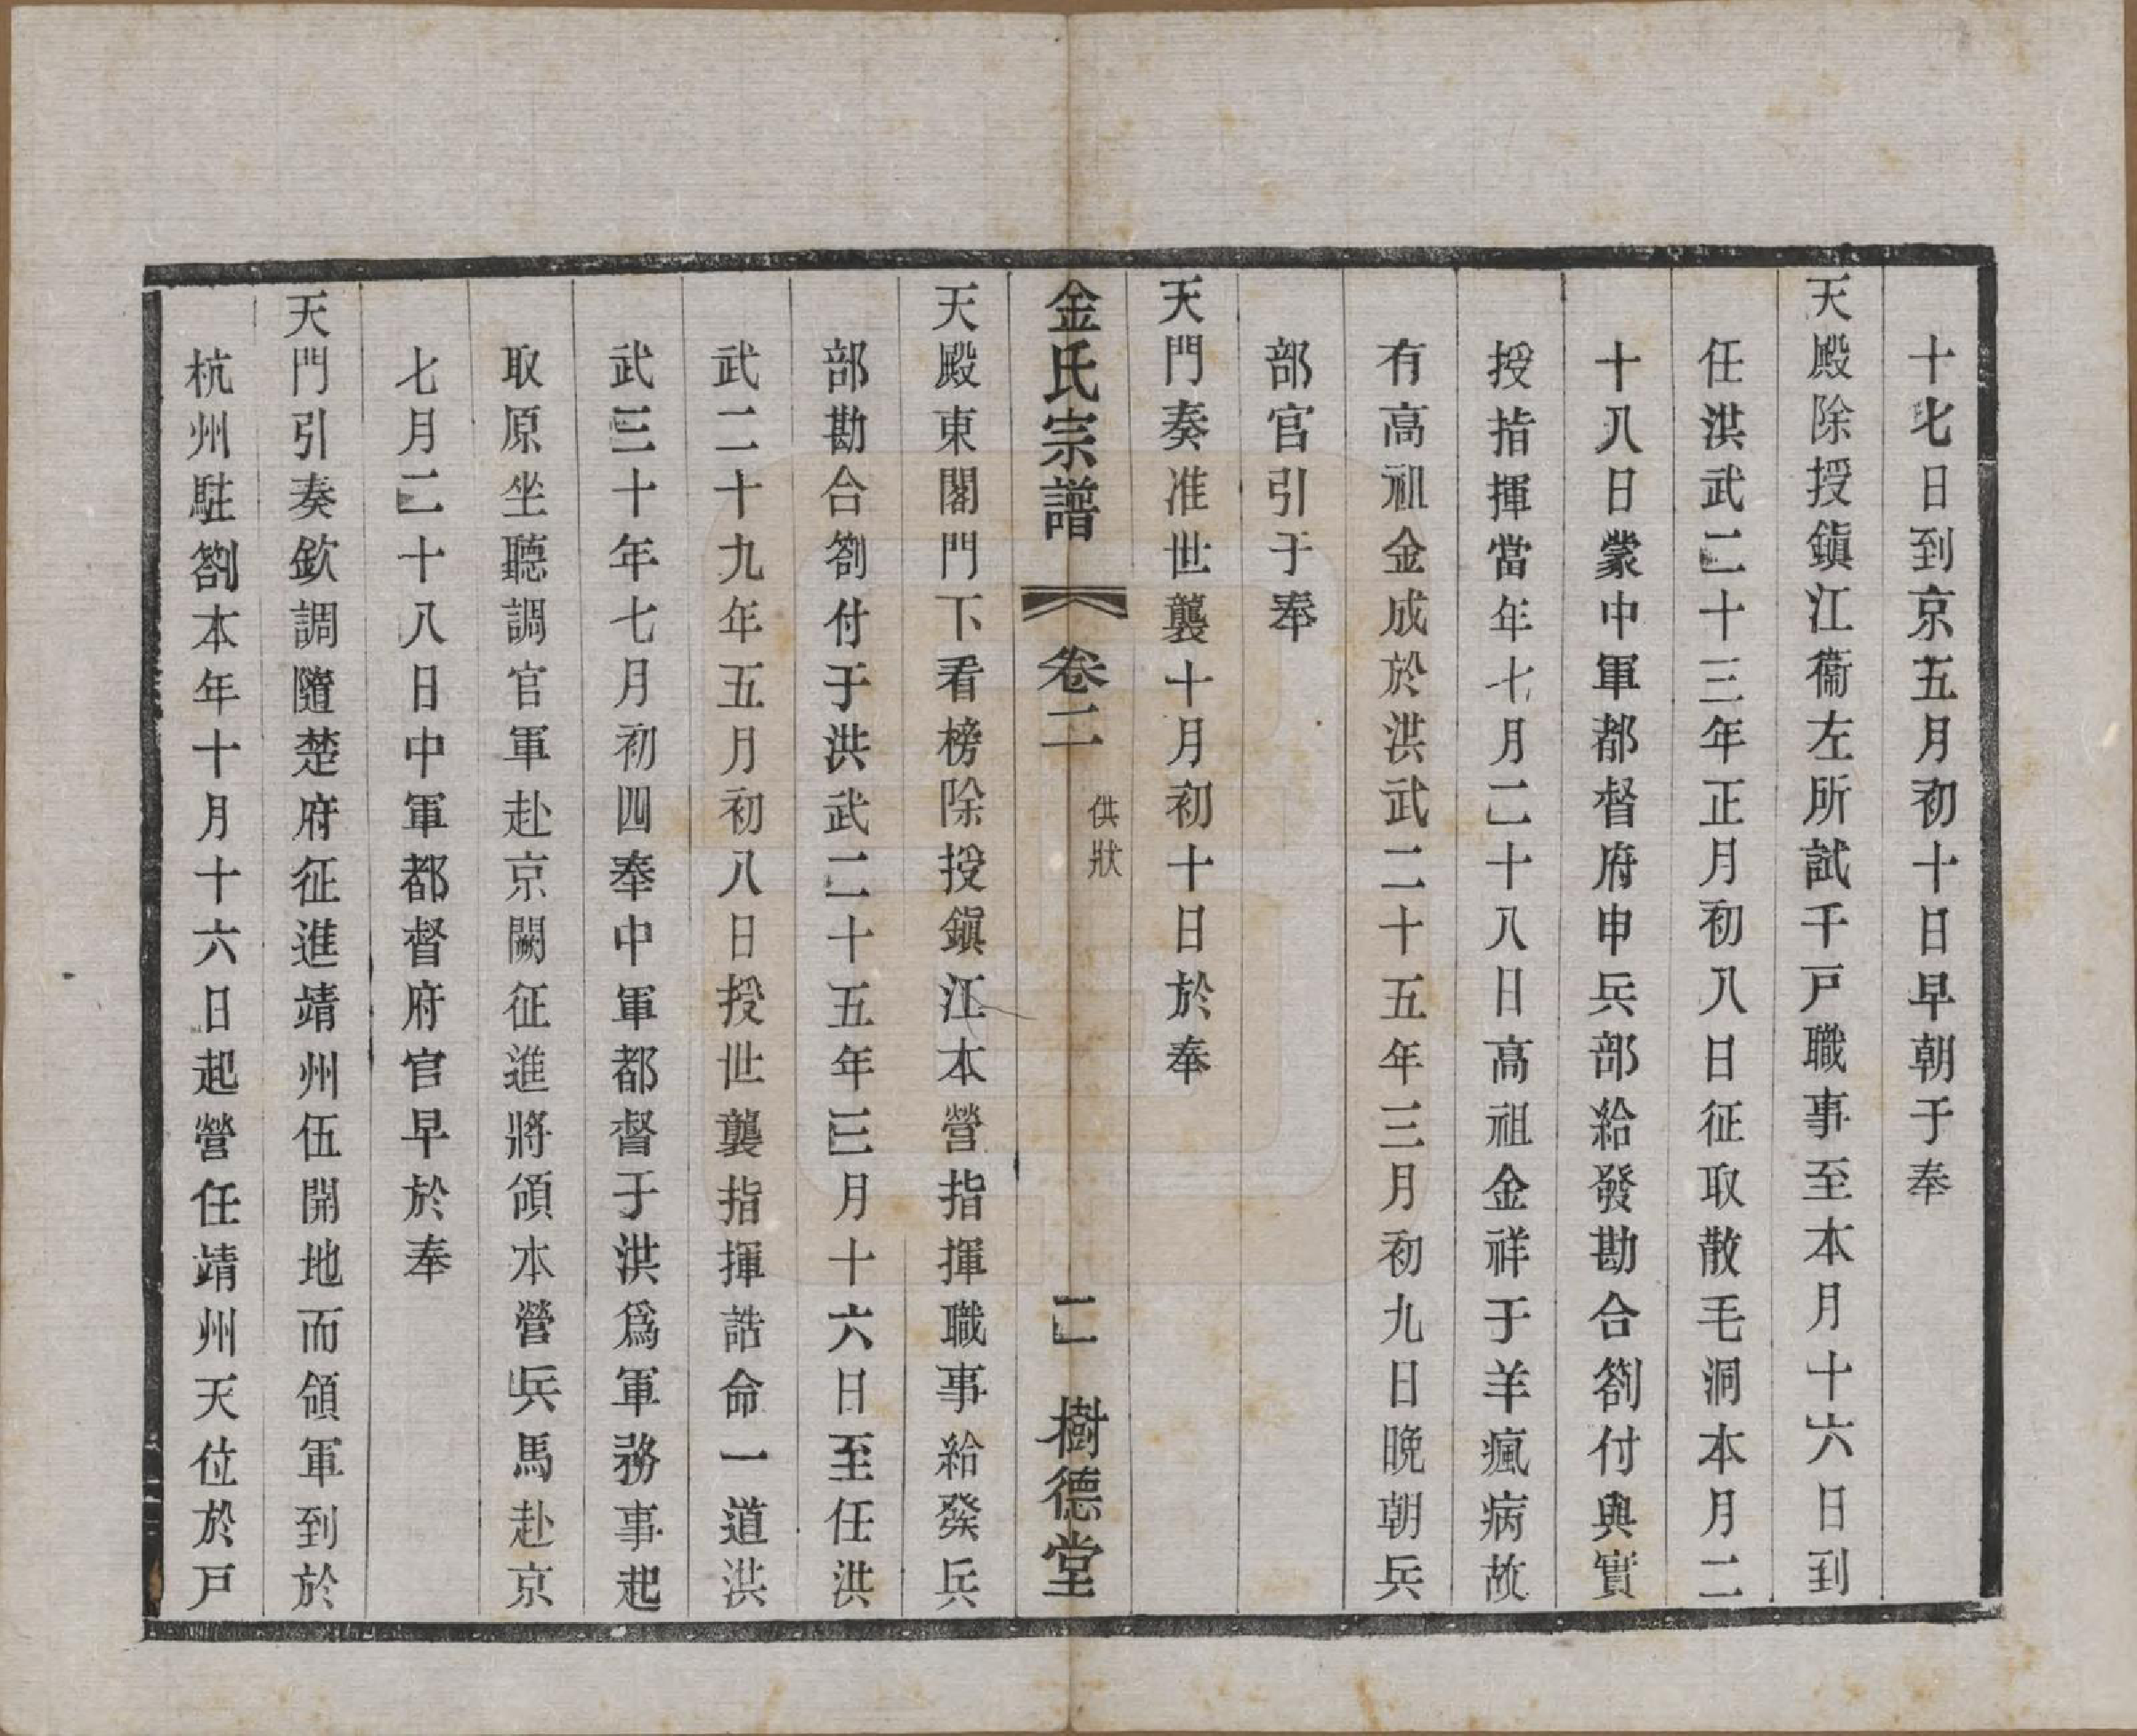 十七日到京五月初十日早朝于奉
天殿除授鎭江衞左所試千戸職事至本月十六日到
任洪武二十三年正月初八日征取散毛洞本月二
十八日蒙中軍都督府申兵部給發勘合劄付與實
授指揮當年七月二十八日高祖金祥于羊瘋病故
有高祖金成於洪武二十五年三月初九日晩朝兵
部官引于奉
天門奏准世襲十月初十日於奉
金氏宗譜 卷二 供狀 二 樹德堂
天殿東閣門下看榜除授鎭江本營指揮職事給發兵
部勘合劄付于洪武二十五年三月十六日至任洪
武二十九年五月初八日授世襲指揮誥命一道洪
武三十年七月初四奉中軍都督于洪爲軍務事起
取原坐聽調官軍赴京闕征進將領本營兵馬赴京
七月二十八日中軍都督府官早於奉
天門引奏欽調隨楚府征進靖州伍開地而領軍到於
杭州駐劄本年十月十六日起營任靖州天位於戸